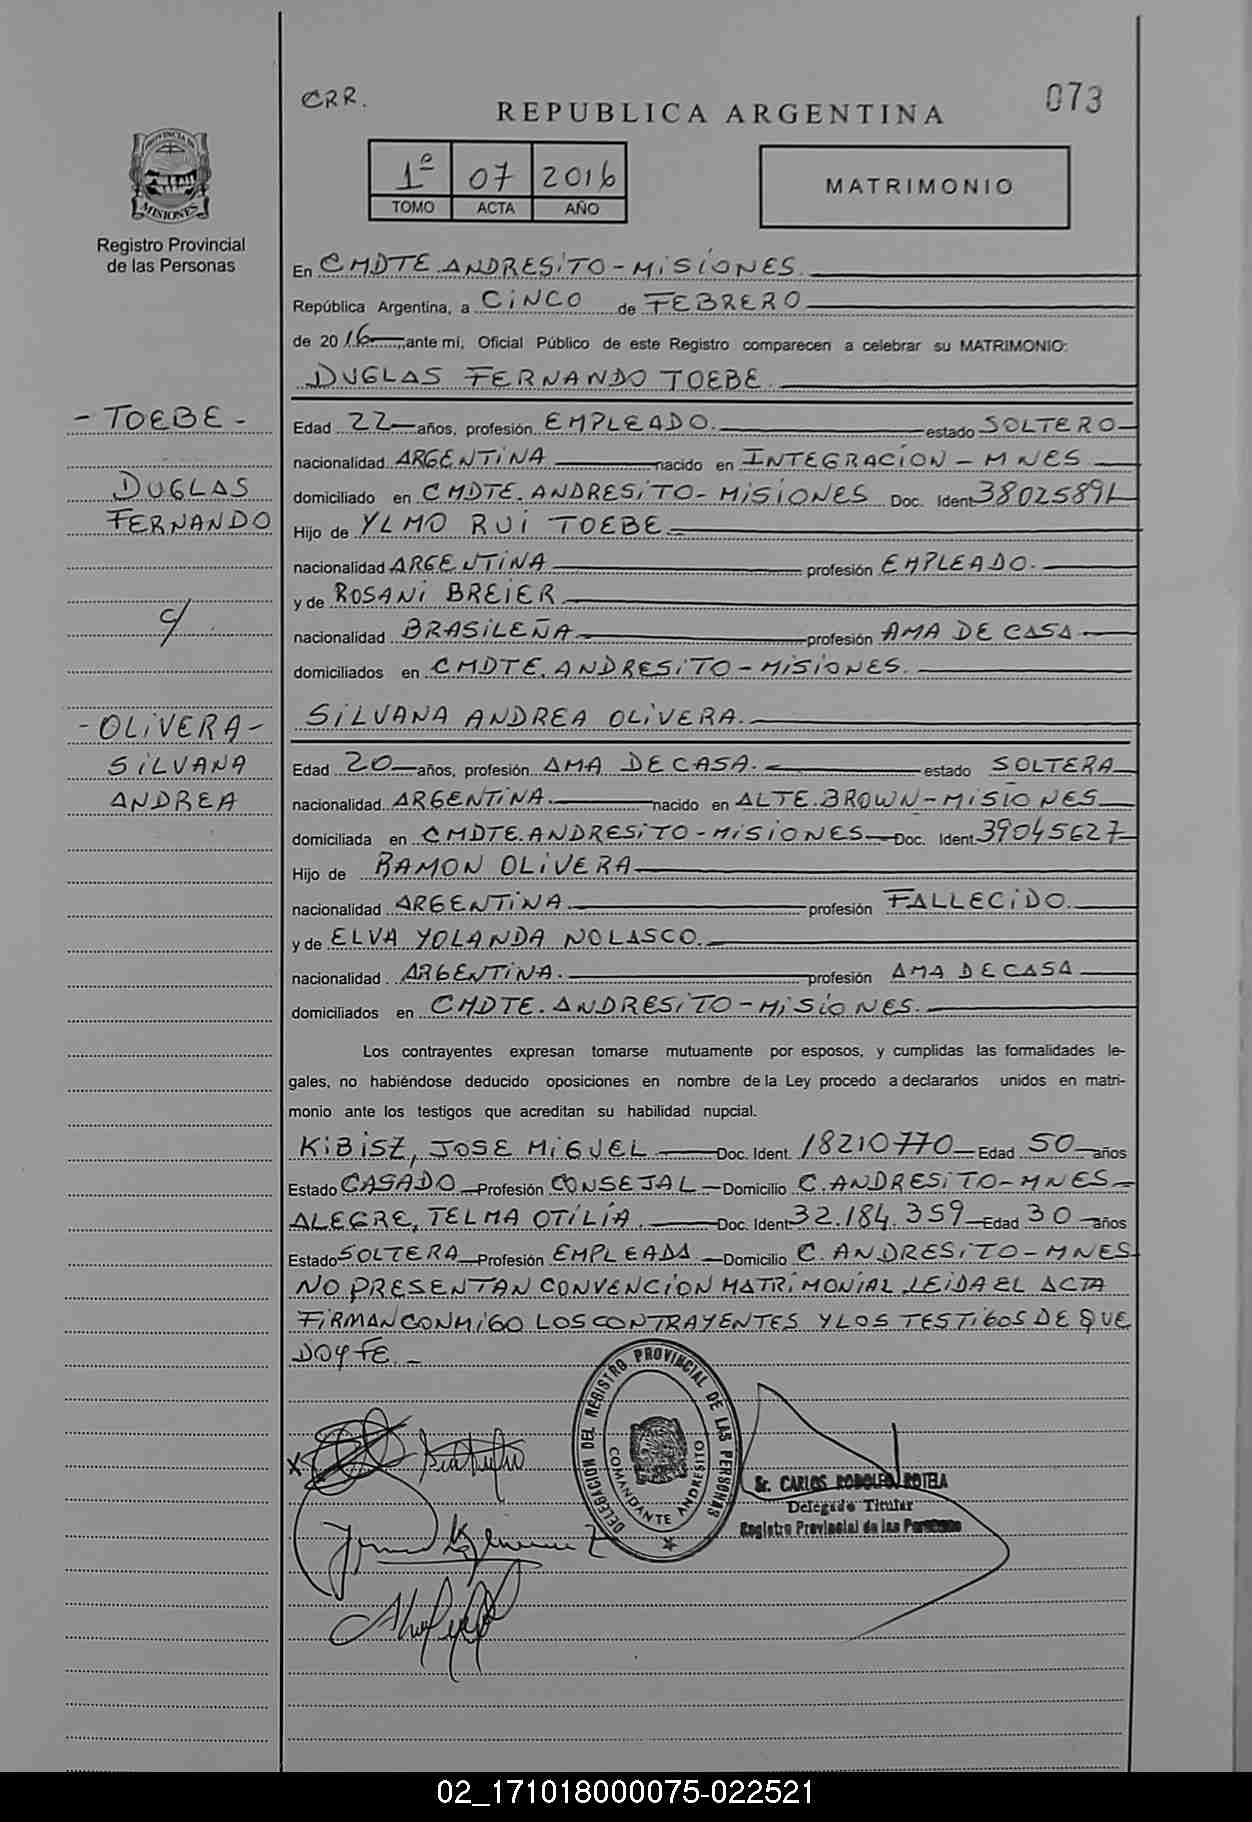 CRR.
073
REPUBLICA ARGENTINA
PROVINCIA DE
MISIONES
Registro Provincial
de las Personas
1º 07 2016
TOMO ACTA AÑO
MATRIMONIO
En CMDTE ANDRESITO - MISIONES
República Argentina, a CINCO de FEBRERO
de 2016 ante mí, Oficial Público de este Registro comparecen a celebrar su MATRIMONIO:
DUGLAS FERNANDO TOEBE.
- TOEBE -
DUGLAS
FERNANDO
c/
- OLIVERA -
SILVANA
ANDREA
Edad 22 años, profesión EMPLEADO. estado SOLTERO
nacionalidad ARGENTINA nacido en INTEGRACION - MNES
domiciliado en CMDTE. ANDRESITO - MISIONES Doc. Ident.
Hijo de YLMO RUI TOEBE
nacionalidad ARGENTINA profesión EMPLEADO.
y de ROSANI BREIER
nacionalidad BRASILEÑA profesión AMA DE CASA
domiciliados en CMDTE. ANDRESITO - MISIONES.
SILVANA ANDREA OLIVERA.
Edad 20 años, profesión AMA DE CASA. estado SOLTERA
nacionalidad ARGENTINA. nacido en ALTE. BROWN - MISIONES
domiciliada en CMDTE. ANDRESITO - MISIONES Doc. Ident. 39045627
Hijo de RAMON OLIVERA
nacionalidad ARGENTINA. profesión FALLECIDO.
y de ELVA YOLANDA NOLASCO.
nacionalidad ARGENTINA. profesión AMA DE CASA
domiciliados en CMDTE. ANDRESITO - MISIONES.
Los contrayentes expresan tomarse mutuamente por esposos, y cumplidas las formalidades le-
gales, no habiéndose deducido oposiciones en nombre de la Ley procedo a declararlos unidos en matri-
monio ante los testigos que acreditan su habilidad nupcial.
KIBISZ, JOSE MIGUEL Doc. Ident. 18210770 Edad 50 años
Estado CASADO Profesión CONSEJAL Domicilio C. ANDRESITO - MNES
ALEGRE, TELMA OTILIA. Doc. Ident. 32.184.359 Edad 30 años
Estado SOLTERA Profesión EMPLEADA Domicilio C. ANDRESITO - MNES
NO PRESENTAN CONVENCION MATRIMONIAL LEIDA EL ACTA
FIRMAN CONMIGO LOS CONTRAYENTES Y LOS TESTIGOS DE QUE
DOY FE. -
DELEGACION DEL REGISTRO PROVINCIAL DE LAS PERSONAS
COMANDANTE ANDRESITO
Sr. CARLOS RODOLFO ROTELA
Delegado Titular
Registro Provincial de las Personas
02_171018000075-022521